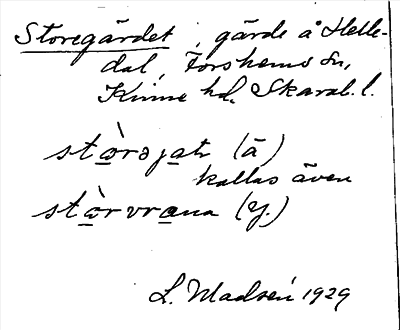 Storegärdet, gärde å Helle-
dal, Forshems sn,
Kinne hd, Skarab. l.
stòrəjatr (ā)
kallas även
stòrvrana (y.)
L. Madsén 1929